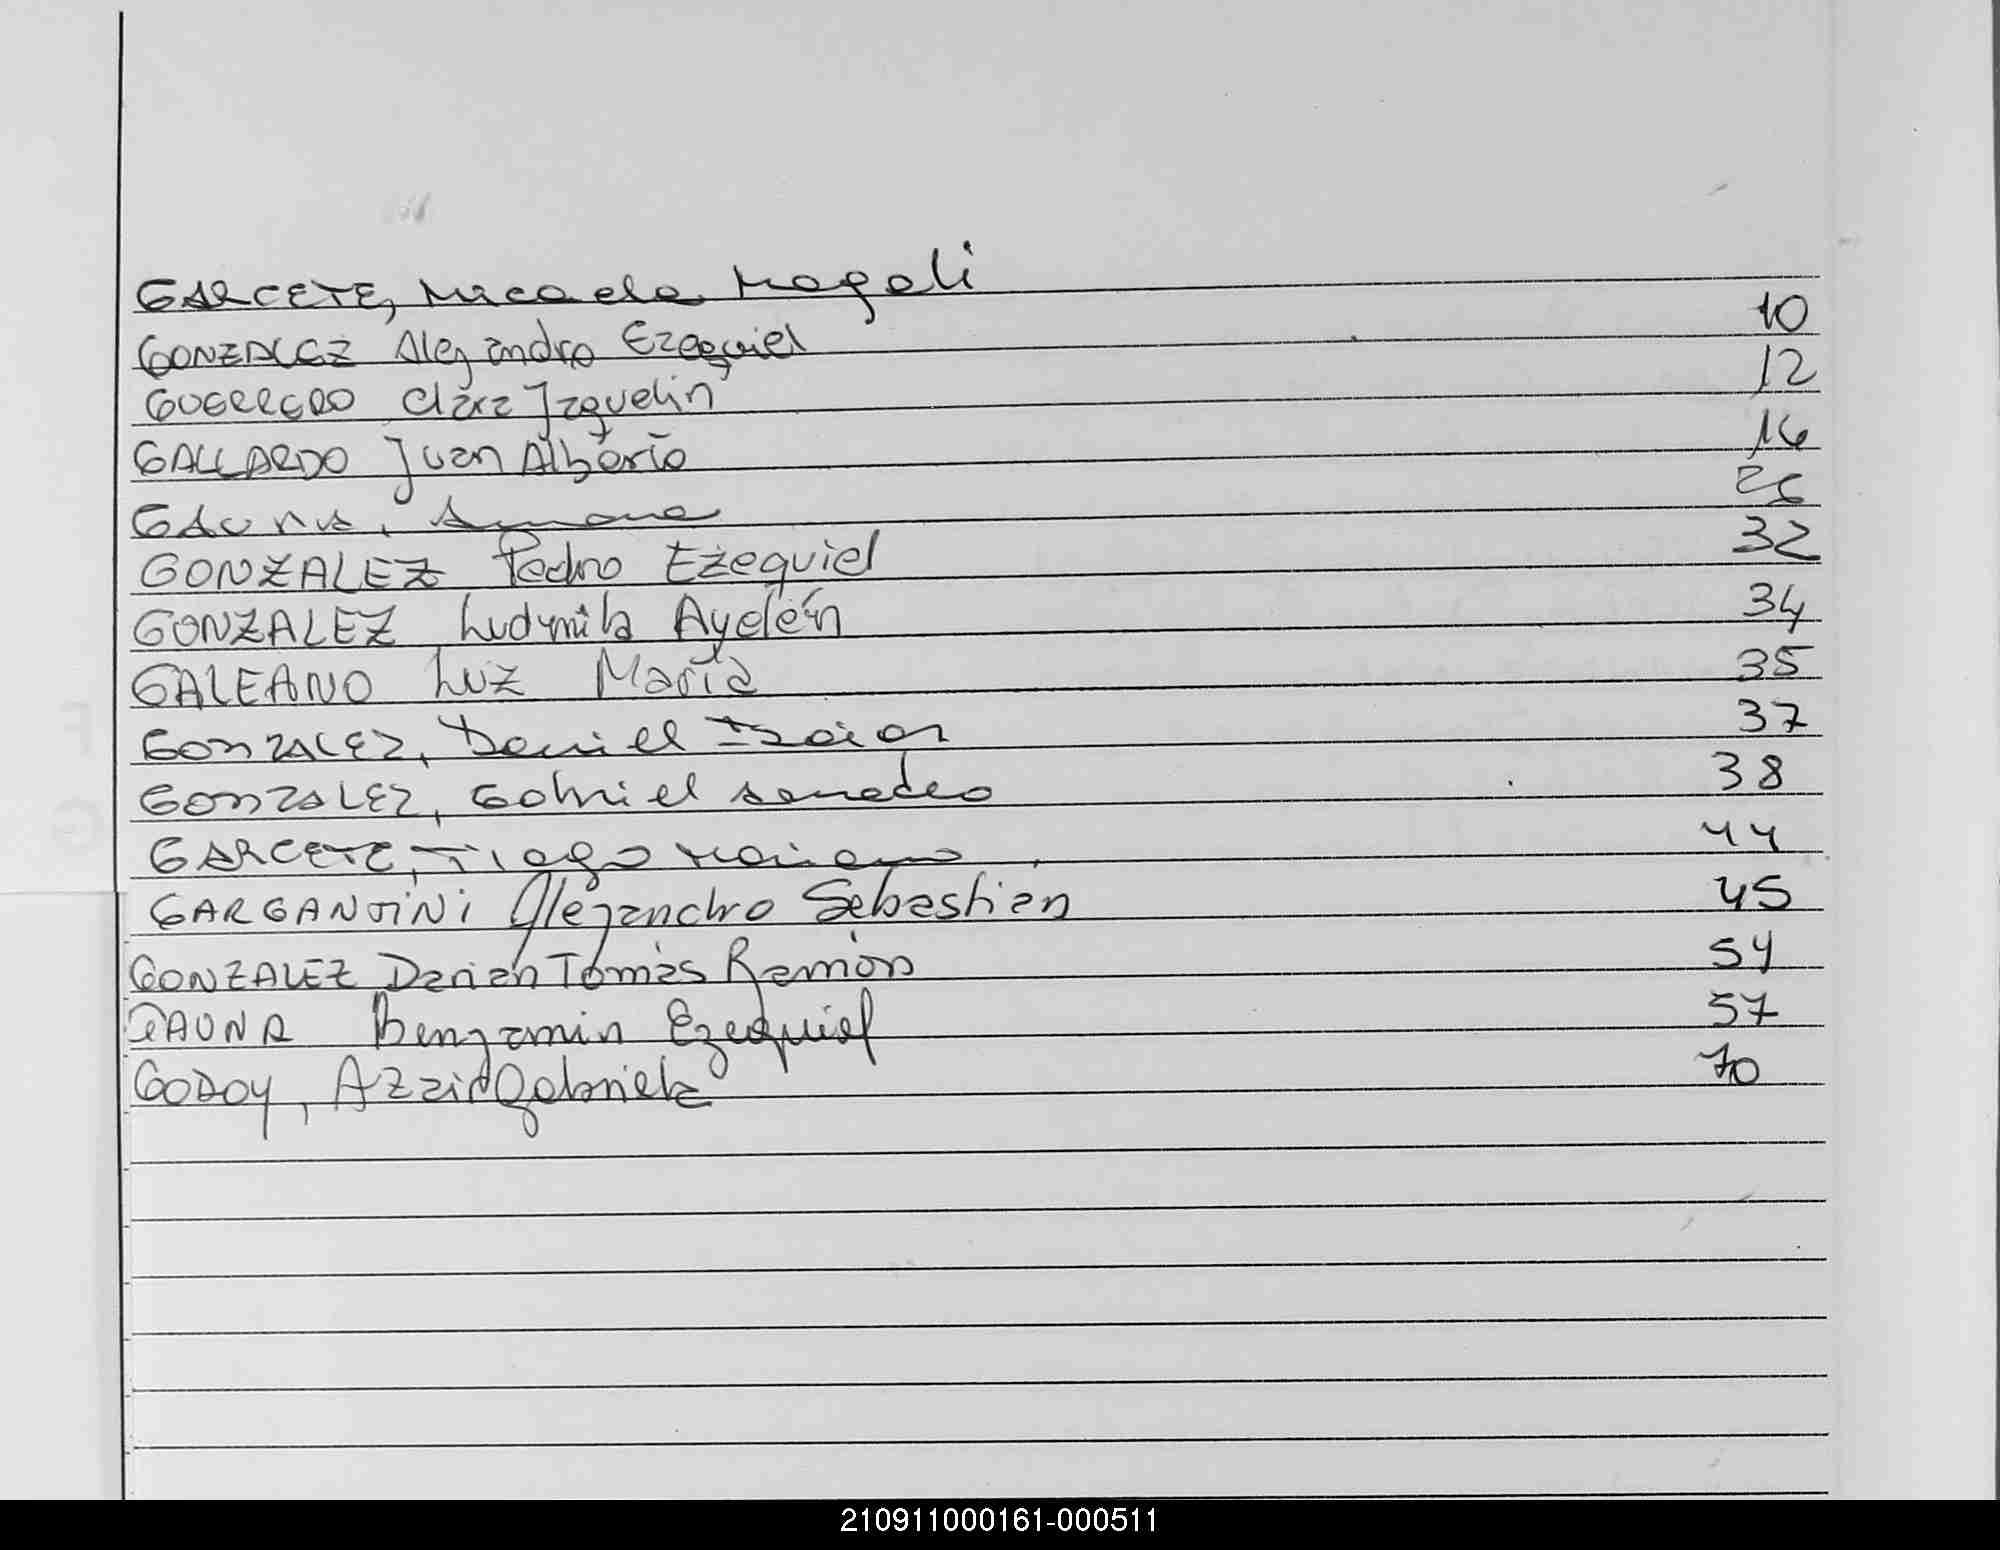 GARCETE, Micaela Magali
GONZALEZ Alejandro Ezequiel 10
GUERRERO Clara Jaquelin 12
GALLARDO Juan Alberto 16
GAUNA, 26
GONZALEZ Pedro Ezequiel 32
GONZALEZ Ludmila Ayelén 34
GALEANO Luz María 35
GONZALEZ, Daniel 37
GONZALEZ, Gabriel Amadeo 38
GARCETE, Tiago Mariano 44
GARGANTINI Alejandro Sebastián 45
GONZALEZ Darián Tomás Ramón 54
GAUNA Benjamín Ezequiel 57
GODOY, Gabriela 70
210911000161-000511